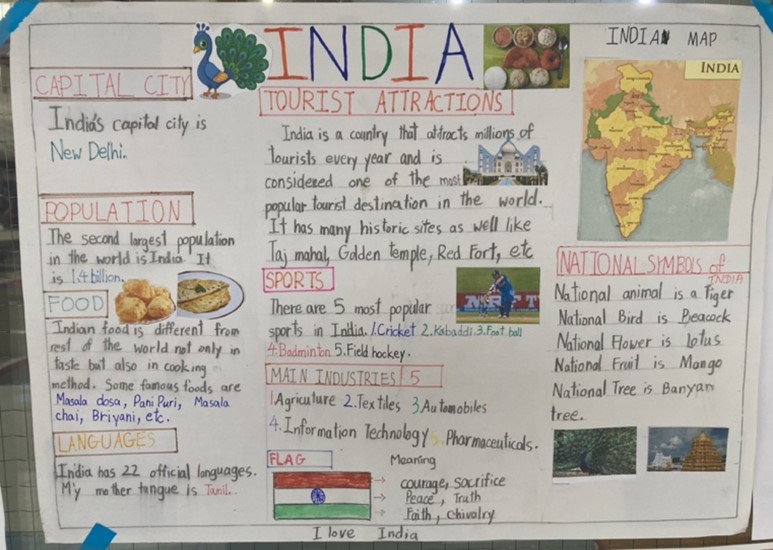 INDIA
INDIAN MAP
INDIA
CAPITAL CITY
India's capital city is
New Delhi.
POPULATION
The second largest population
in the world is India It
is 1.4 billion.
FOOD
Indian food is different from
rest of the world not only in
taste but also in cooking
method. Some famous foods are
Masala dosa, Pani Puri, Masala
chai, Briyani, etc.
LANGUAGES
India has 22 official languages.
My mother tongue is Tamil.
TOURIST ATTRACTIONS
India is a country that attracts millions of
tourists every year and is
considered one of the most
popular tourist destination in the world.
It has many historic sites as well like
Taj mahal, Golden temple, Red Fort, etc
SPORTS
There are 5 most popular
sports in India. 1.Cricket 2.Kabaddi 3.Foot ball
4.Badminton 5.Field hockey.
MAIN INDUSTRIES 5
1.Agriculture 2.Textiles 3 Automobiles
4. Information Technology 5. Pharmaceuticals.
FLAG
Meaning
courage, Sacrifice
Peace, Truth
Faith, Chivalry
I love India
NATIONAL SYMBOLS of
INDIA
National animal is a Tiger
National Bird is Peacock
National Flower is Lotus
National Fruit is Mango
National Tree is Banyan
tree.